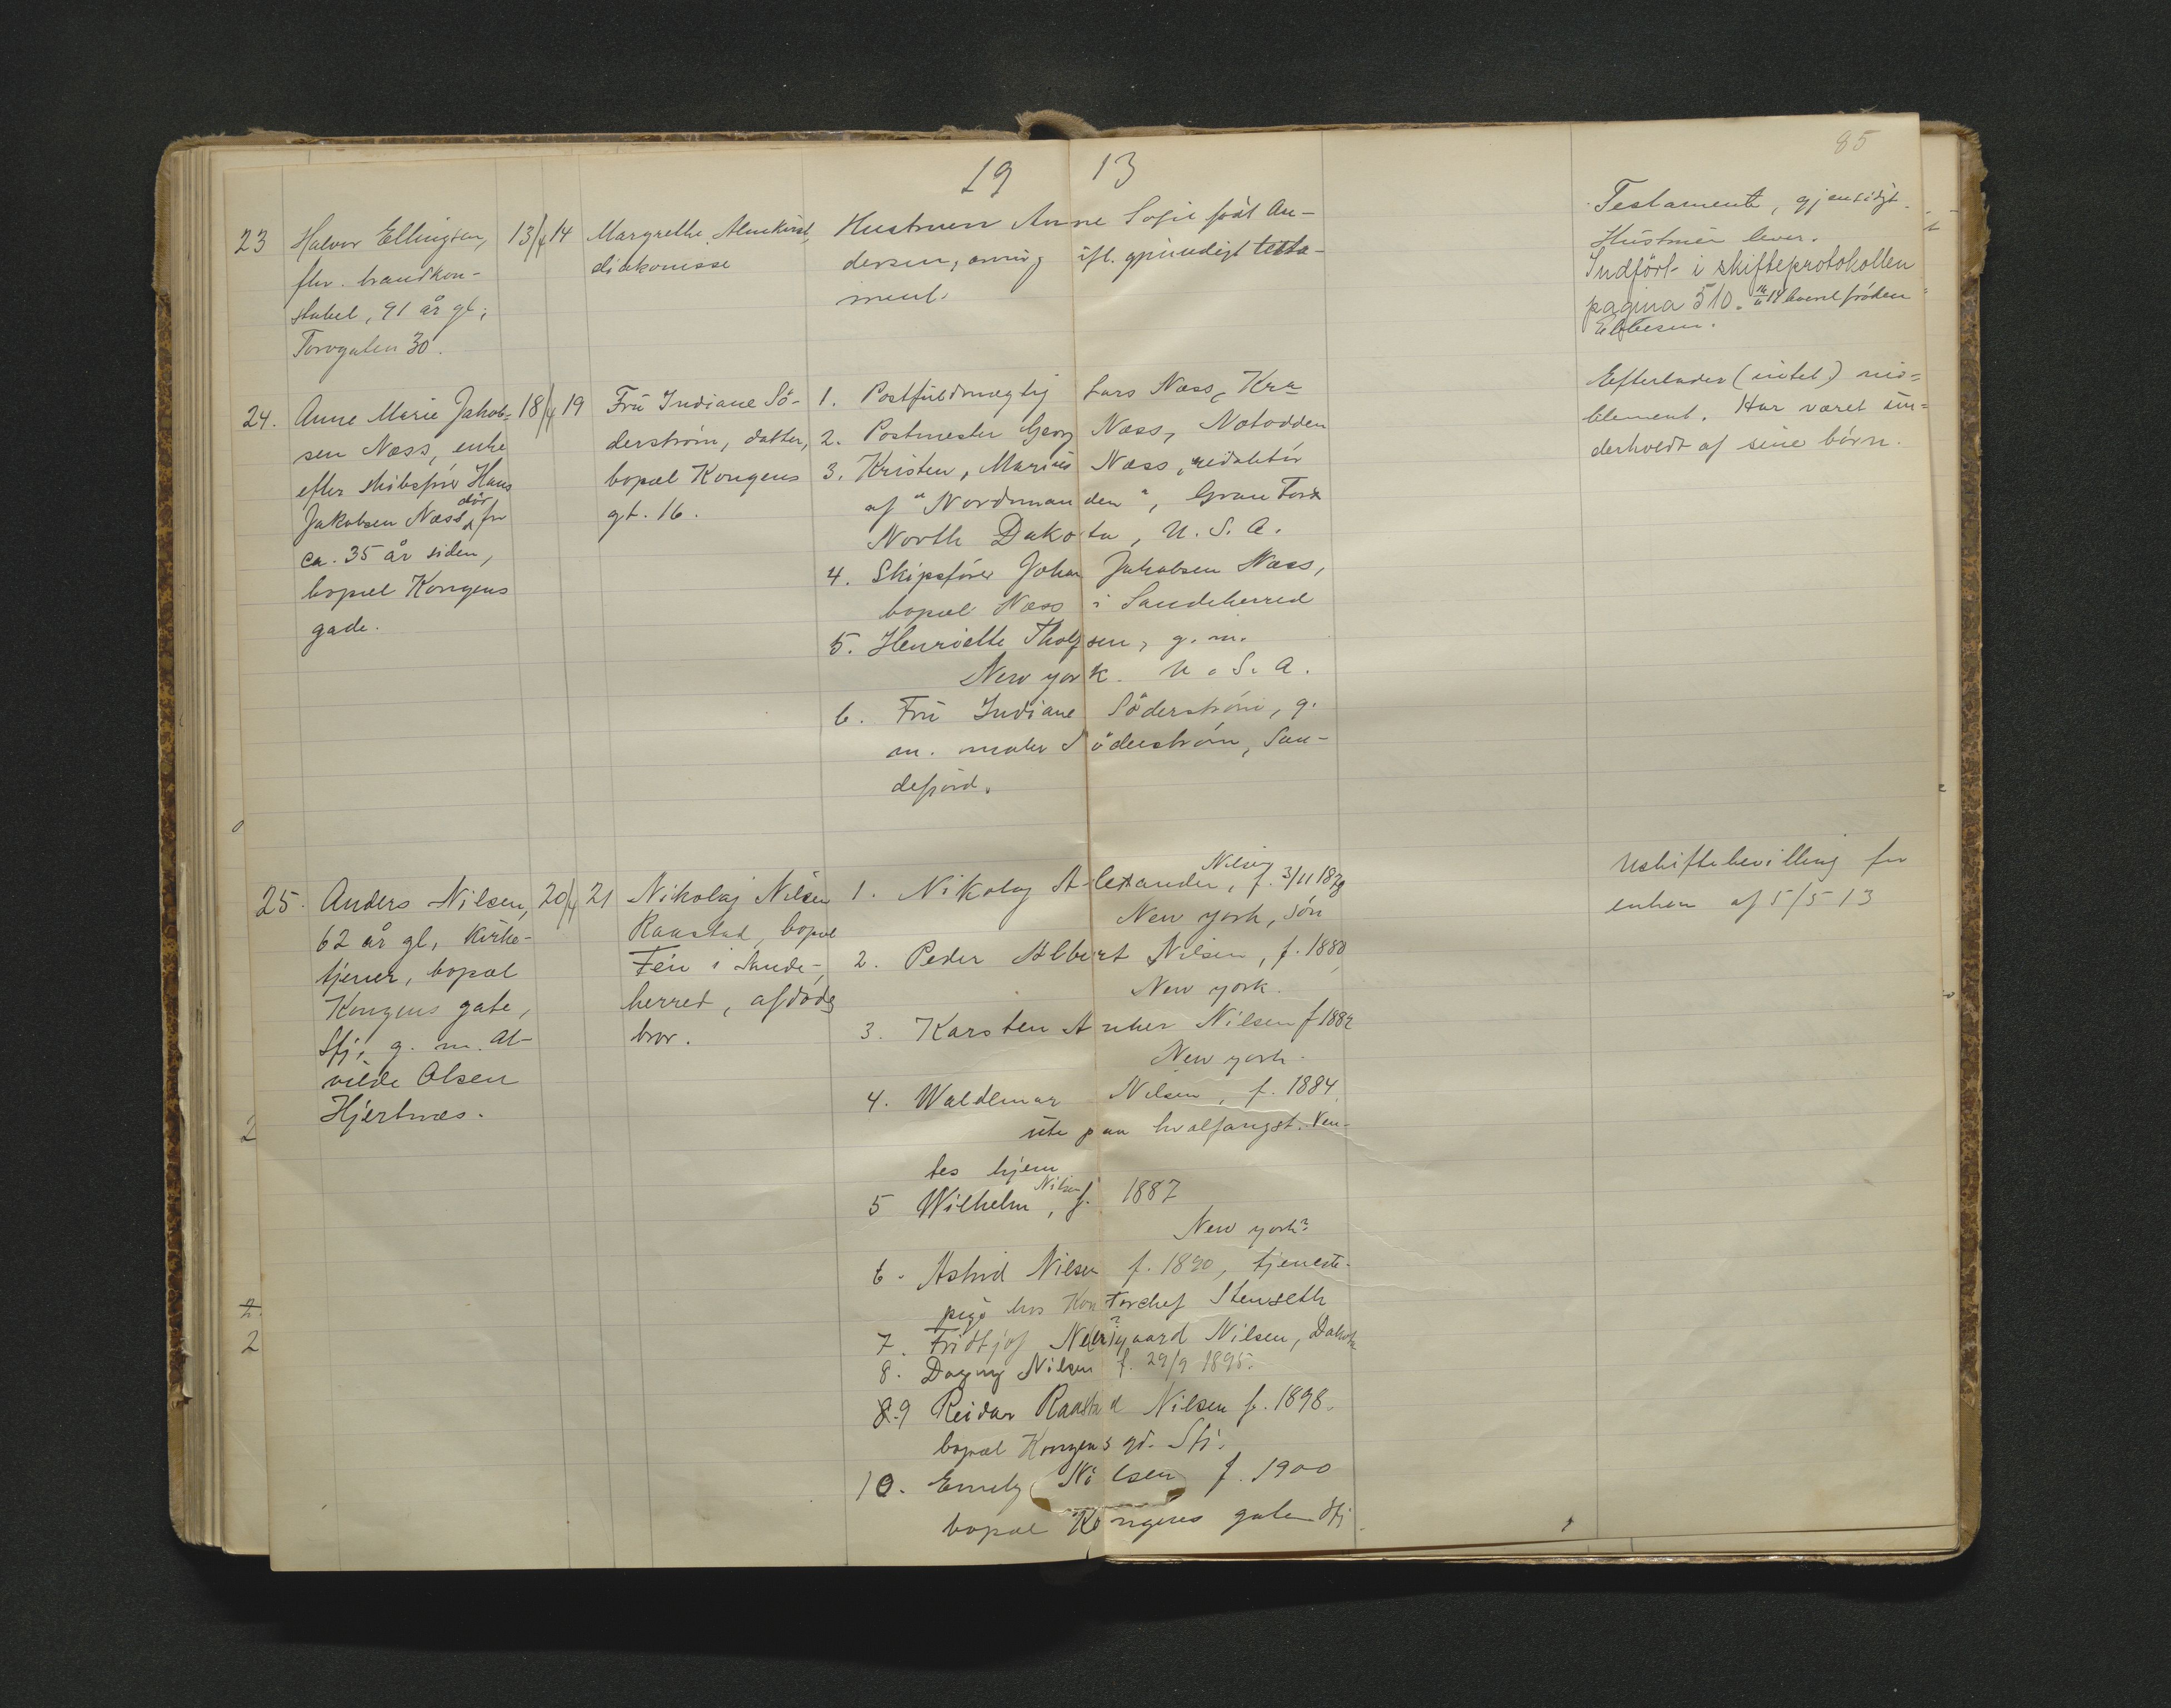 85
19 13
23 Halvor Ellingsen,
fhv. brandkon-
stabel, 91 år gl.,
Torvgaten 30.
13/4 14
Margrethe Almkvist,
diakonisse
Hustruen Anne Sofie født An-
dersen, arving ifl. gjensidigt testa-
ment.
Testament, gjensidigt.
Hustruen lever.
Indført i skifteprotokollen
pagina 510.
Ellefsen.
24. Anne Marie Jakob-
sen Næss, enke
efter skibsfører Hans
Jakobsen Næss, død for
ca. 35 år siden,
bopæl Kongens
gade.
18/4 19
Fru Indiane Sö-
derström, datter,
bopæl Kongens
gt. 16.
1. Postfuldmægtig Lars Næss, Kra
2. Postmester Georg Næss, Notodden
3. Kristen, Marius Næss, redaktör
af "Nordmanden", Gran Fork
North Dakota, U.S.A.
4. Skipsfører Johan Jakobsen Næss,
bopæl Næss i Sandeherred
5. Henriette Tholfsen, g. m.
New york. U.S.A.
6. Fru Indiane Söderström, g.
m. maler Söderström, San-
defjord.
Efterlader (intet) mö-
blement. Har været un-
derholdt af sine börn.
25. Anders Nilsen,
62 år gl., kirke-
tjener, bopæl
Kongens gate,
Sfj., g. m. Al-
vilde Olsen
Hjertnæs.
20/4 21
Nikolaj Nilsen
Raastad, bopæl
Fén i Sande-
herred, afdödes
bror.
1. Nikolay Alexander Nilsen, f. 3/11 1878
New york, sön
2. Peder Albert Nilsen, f. 1880
New york.
3. Karsten Anker Nilsen f 1882
New york.
4. Waldemar Nilsen, f. 1884
ute paa hvalfangst. Ven-
tes hjem
5 Wilhelm Nilsen, f. 1887
New york?
6. Astrid Nilsen f. 1890, tjeneste-
pige hos Kontorchef Stenseth
7. Fridtjof Nilsen, Dakota
8. Dagny Nilsen f. 29/9 1895.
8.9 Reidar Raastad Nilsen f. 1898.
bopæl Kongens gt. Sfj.
10. Emely Nilsen f. 1900
bopæl Kongens gate Sfj.
Uskiftebevilling for
enken af 5/5 13
2
2
2